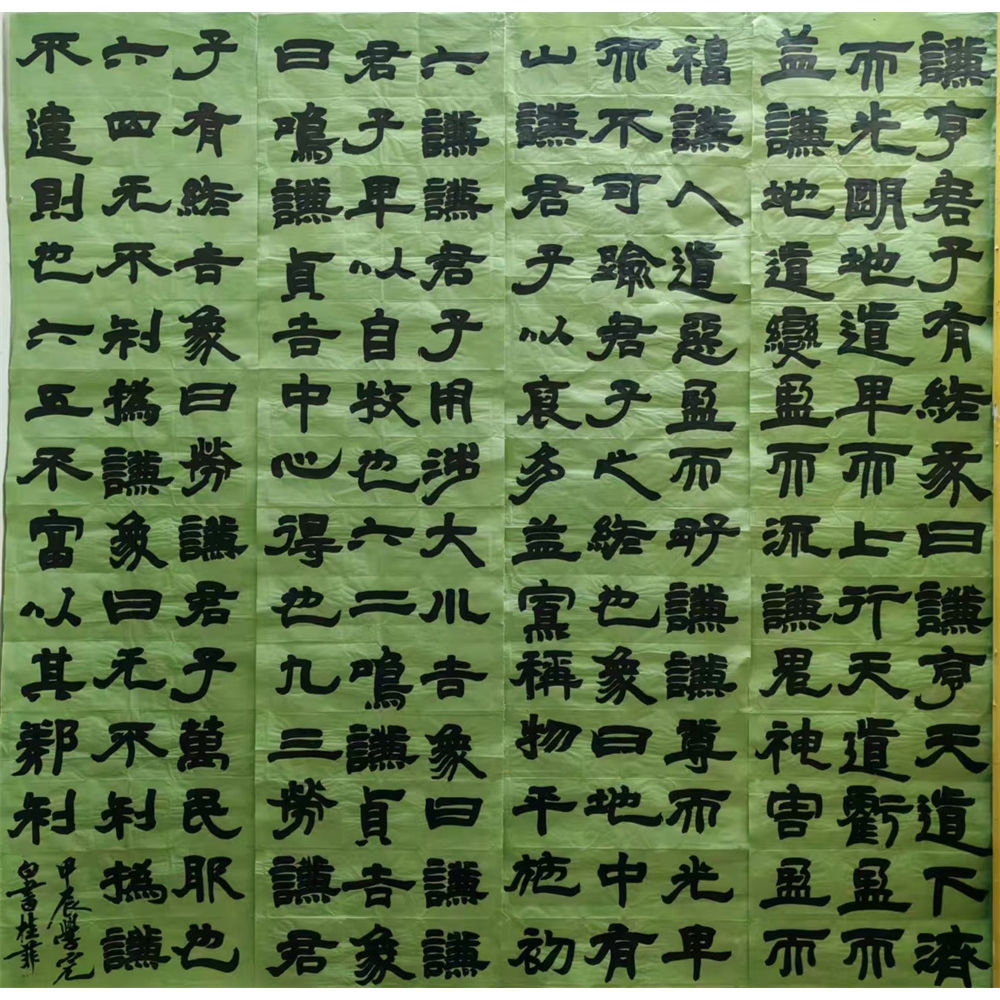 謙亨君子有終彖曰謙亨天道下濟
而光明地道卑而上行天道虧盈而
益謙地道變盈而流謙鬼神害盈而
福謙人道惡盈而好謙謙尊而光卑
而不可踰君子之終也象曰地中有
山謙君子以裒多益寡稱物平施初
六謙謙君子用涉大川吉象曰謙謙
君子卑以自牧也六二鳴謙貞吉象
曰鳴謙貞吉中心得也九三勞謙君
子有終吉象曰勞謙君子萬民服也
六四无不利撝謙象曰无不利撝謙
不違則也六五不富以其鄰利
甲辰學
書桂菲